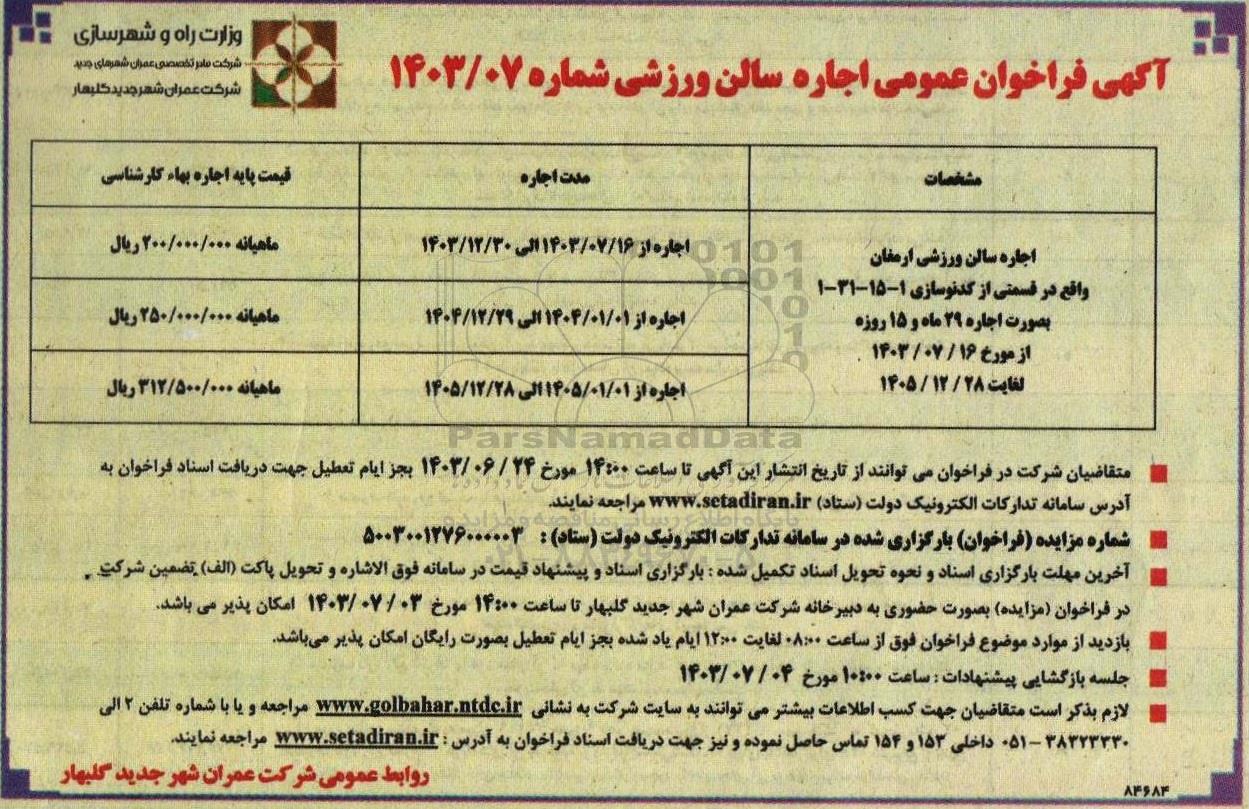 وزارت راه و شهرسازی
شرکت مادر تخصصی عمران شهرهای جدید
شرکت عمران شهر جدید گلبهار
آگهی فراخوان عمومی اجاره سالن ورزشی شماره ۱۴۰۳/۰۷
مشخصات
مدت اجاره
قیمت پایه اجاره بهاء کارشناسی
اجاره سالن ورزشی ارمغان
واقع در قسمتی از کدنوسازی ۱-۱۵-۳۱-۱
بصورت اجاره ۲۹ ماه و ۱۵ روزه
از مورخ ۱۶ / ۰۷ / ۱۴۰۳
لغایت ۲۸ / ۱۲ / ۱۴۰۵
اجاره از ۱۴۰۳/۰۷/۱۶ الی ۱۴۰۳/۱۲/۳۰
ماهیانه ۲۰۰/۰۰۰/۰۰۰ ریال
اجاره از ۱۴۰۴/۰۱/۰۱ الی ۱۴۰۴/۱۲/۲۹
ماهیانه ۲۵۰/۰۰۰/۰۰۰ ریال
اجاره از ۱۴۰۵/۰۱/۰۱ الی ۱۴۰۵/۱۲/۲۸
ماهیانه ۳۱۲/۵۰۰/۰۰۰ ریال
ParsNamadData
متقاضیان شرکت در فراخوان می توانند از تاریخ انتشار این آگهی تا ساعت ۱۴:۰۰ مورخ ۲۴ / ۰۶ / ۱۴۰۳ بجز ایام تعطیل جهت دریافت اسناد فراخوان به
آدرس سامانه تدارکات الکترونیک دولت (ستاد) www.setadiran.ir مراجعه نمایند.
شماره مزایده (فراخوان) بارگزاری شده در سامانه تدارکات الکترونیک دولت (ستاد) : ۵۰۰۳۰۰۱۲۷۶۰۰۰۰۰۳
آخرین مهلت بارگزاری اسناد و نحوه تحویل اسناد تکمیل شده : بارگزاری اسناد و پیشنهاد قیمت در سامانه فوق الاشاره و تحویل پاکت (الف) تضمین شرکت
در فراخوان (مزایده) بصورت حضوری به دبیرخانه شرکت عمران شهر جدید گلبهار تا ساعت ۱۴:۰۰ مورخ ۰۳ / ۰۷ / ۱۴۰۳ امکان پذیر می باشد.
بازدید از موارد موضوع فراخوان فوق از ساعت ۰۸:۰۰ لغایت ۱۲:۰۰ ایام یاد شده بجز ایام تعطیل بصورت رایگان امکان پذیر می‌باشد.
جلسه بازگشایی پیشنهادات : ساعت ۱۰:۰۰ مورخ ۰۴ / ۰۷ / ۱۴۰۳
لازم بذکر است متقاضیان جهت کسب اطلاعات بیشتر می توانند به سایت شرکت به نشانی www.golbahar.ntdc.ir مراجعه و یا با شماره تلفن ۲ الی
۳۸۳۲۳۳۳۰ - ۰۵۱ داخلی ۱۵۳ و ۱۵۴ تماس حاصل نموده و نیز جهت دریافت اسناد فراخوان به آدرس : www.setadiran.ir مراجعه نمایند.
روابط عمومی شرکت عمران شهر جدید گلبهار
۸۴۶۸۴